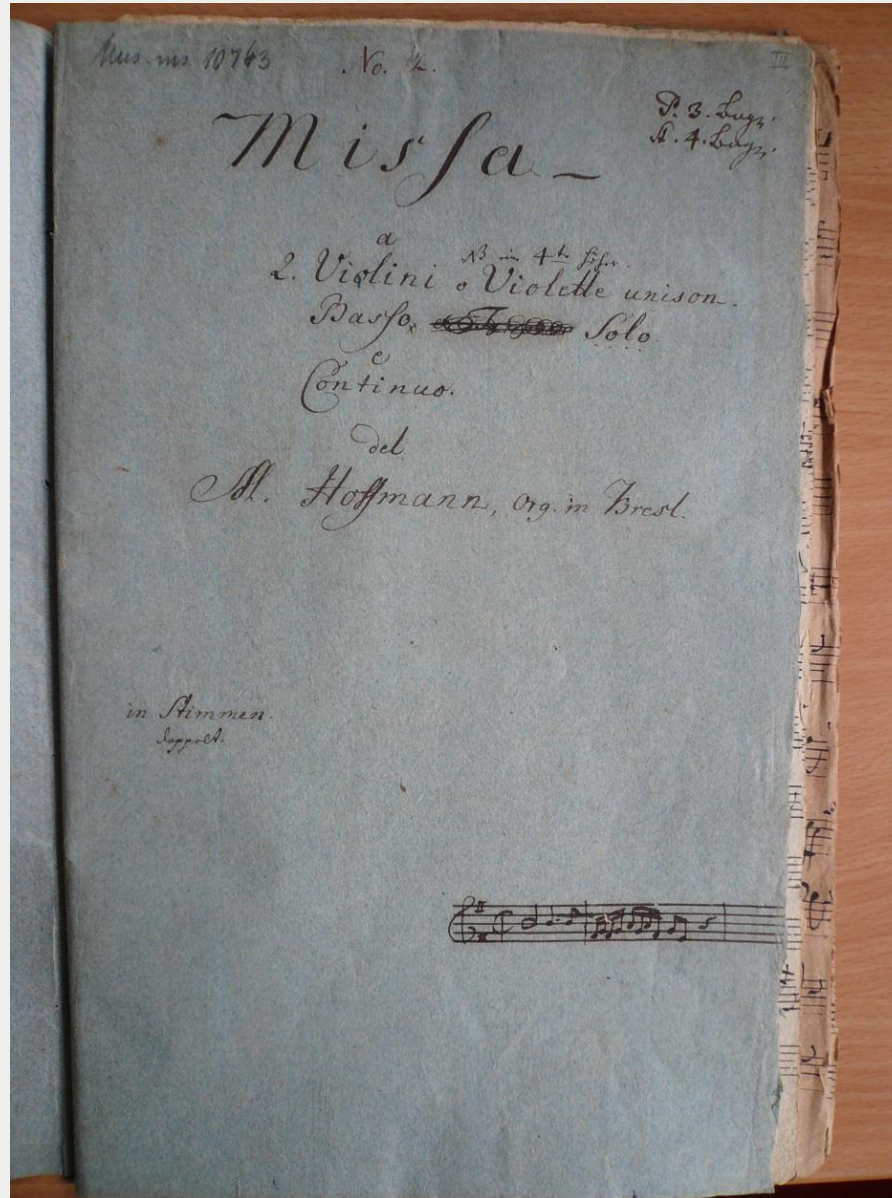 Mus. ms. 10743
No. 2.
III
P. 3. Bogn.
St. 4. Bogn.
Missa
a
NB ein 4te höher.
2. Violini o Violette unison.
Basso Solo
e
Continuo.
del
M. Hoffmann, Org. in Bresl.
in Stimmen.
doppelt.